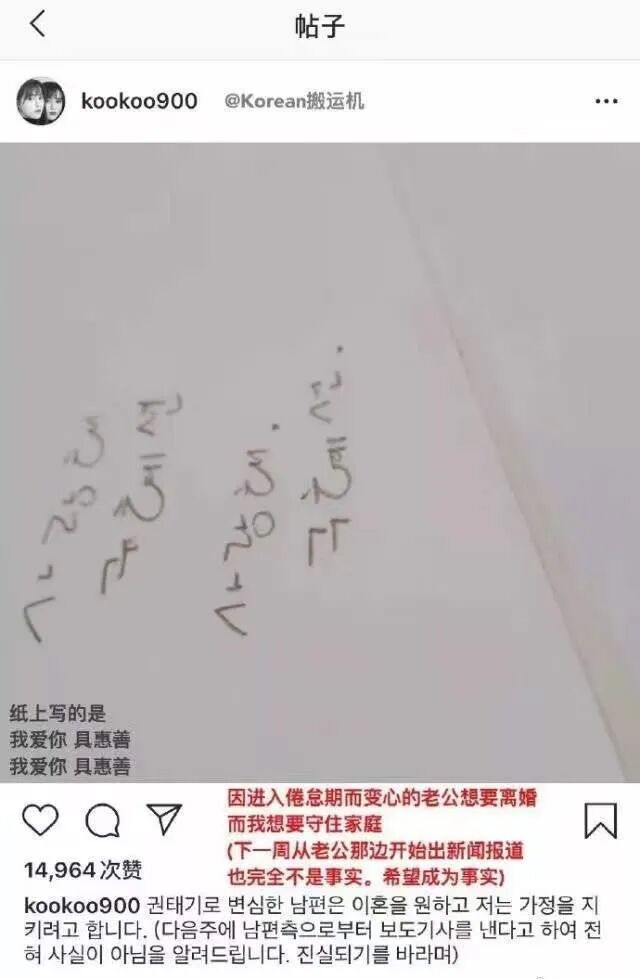 帖子
kookoo900 @Korean搬运机
사랑해
구혜선
사랑해.
구혜선.
纸上写的是
我爱你 具惠善
我爱你 具惠善
因进入倦怠期而变心的老公想要离婚
而我想要守住家庭
(下一周从老公那边开始出新闻报道
也完全不是事实。希望成为事实)
14,964次赞
kookoo900 권태기로 변심한 남편은 이혼을 원하고 저는 가정을 지
키려고 합니다. (다음주에 남편측으로부터 보도기사를 낸다고 하여 전
혀 사실이 아님을 알려드립니다. 진실되기를 바라며)